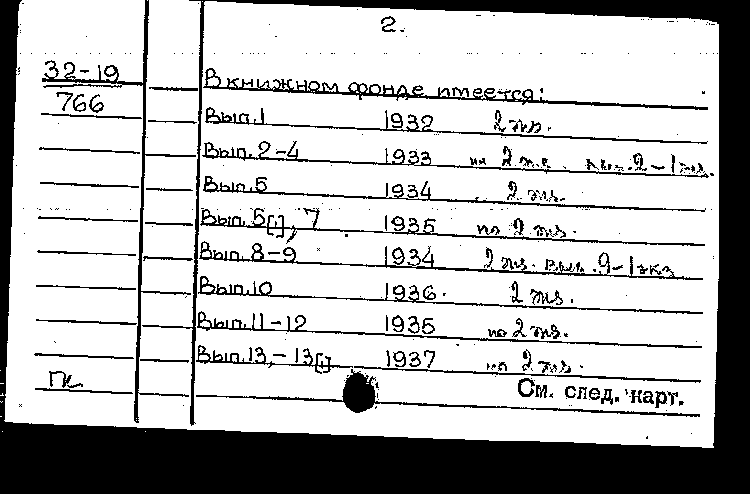 2.
32-19 В книжном фонде имеется:
766
Вып.1 1932 2 экз.
Вып.2-4 1933 по 2 экз. вып.2-1 экз.
Вып.5 1934 2 экз.
Вып.5[!], 7 1935 по 2 экз.
Вып.8-9 1934 2 экз. вып.9-1 экз.
Вып.10 1936. 2 экз.
Вып.11-12 1935 по 2 экз.
Вып.13,-13[!] 1937 по 2 экз.
ГК См. след. карт.